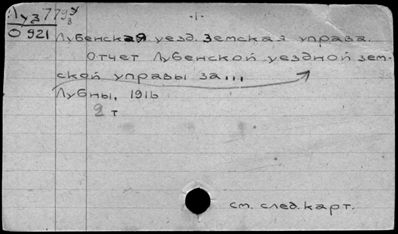 -1-
О 921
Лубенская уезд. Земская управа.
Отчет Лубенской уездной зем-
ской управы за...
Лубны, 1916
2 т
см. след. карт.